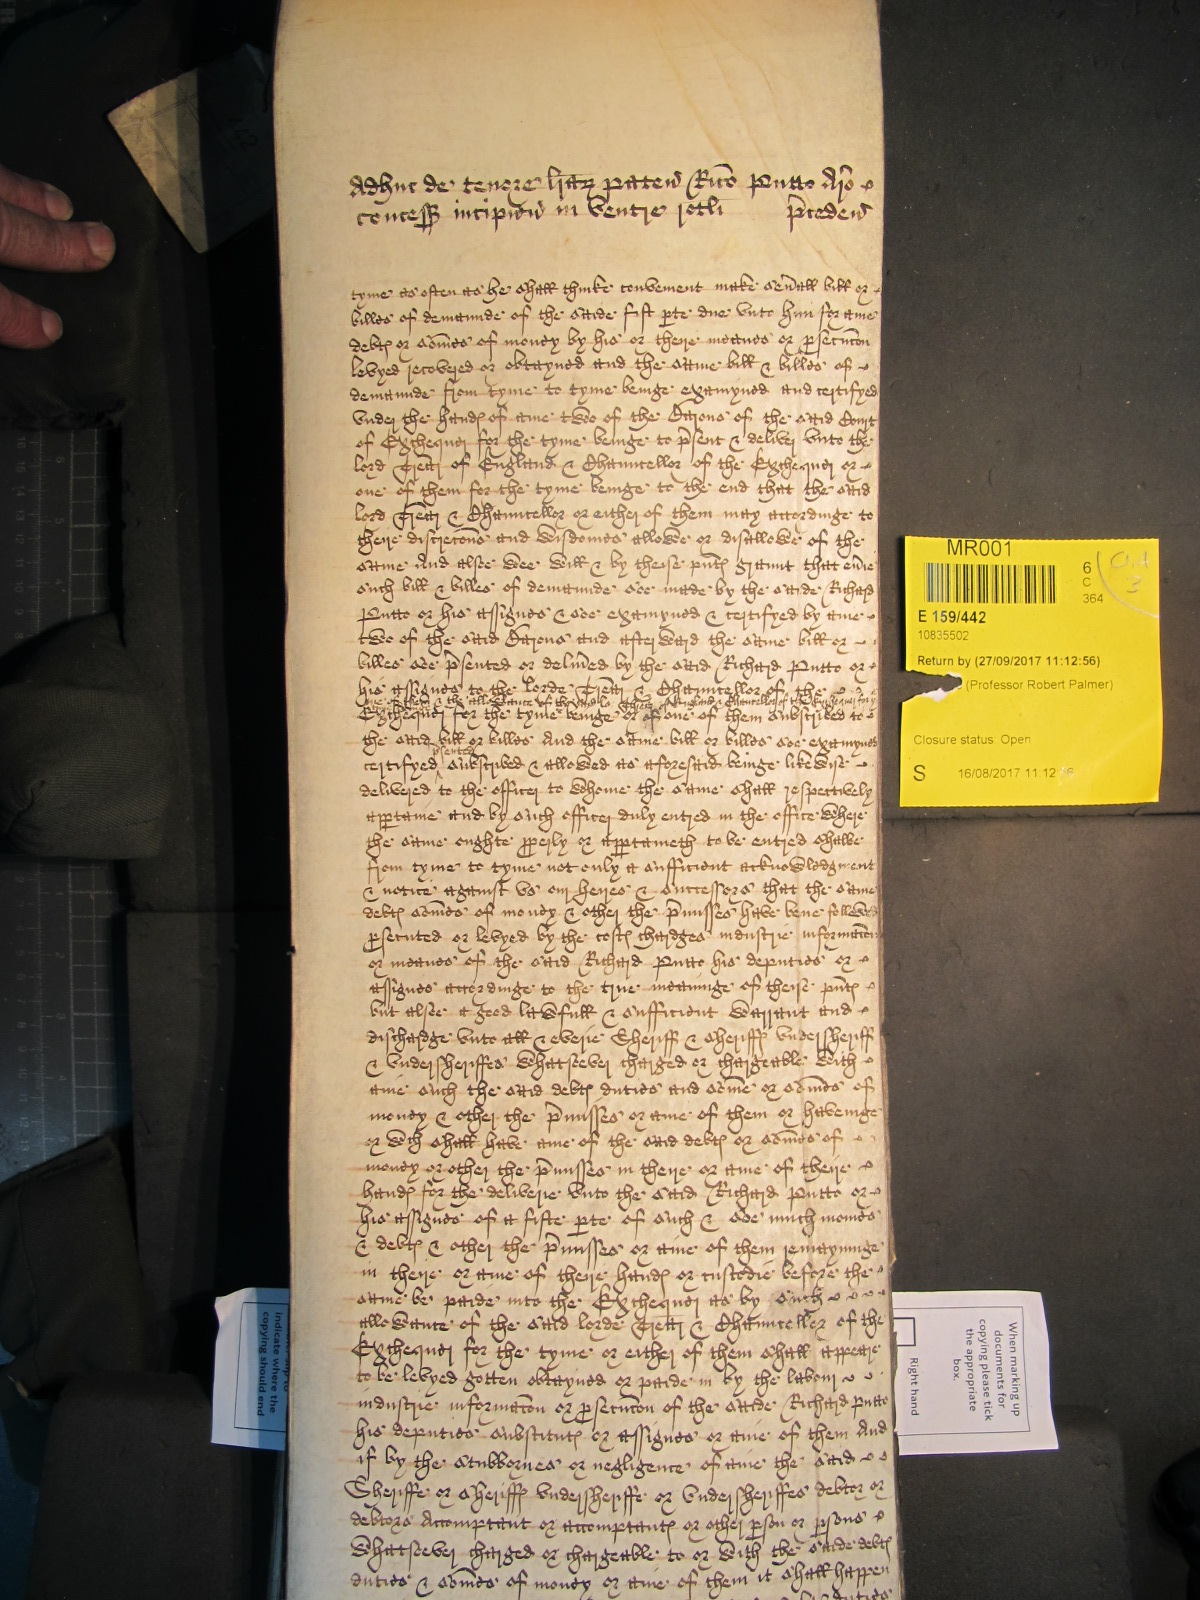 Adhuc de tenore lrarz paten Rico Putto Aro
concess incipien in ventre rotli preceden
tyme as often as he shall thinke convenient make sevall bill or
billes of demaunde of the saide fift pte due vnto him for anie
debts or somes of money by his or theire meanes or psecucon
levyed recovered or obtayned and the same bill & billes of
demaunde from tyme to tyme beinge examyned and certifyed
vnder the hands of anie two of the Barons of the said Court
of Exchequer for the tyme beinge to psent & deliver vnto the
lord Trer of England & Chauncellor of the Exchequer or
one of them for the tyme beinge to the end that the said
lord Trer & Chauncellor or either of them may accordinge to
theire discrecons and wisdomes allowe or disallowe of the
same And alsoe wee will & by theise pnts graunt that evie
such bill & billes of demaunde soe made by the saide Richard
Putto or his assignes & soe examyned & certifyed by anie
two of the said Barons and afterward the same bill or
billes soe psented or delived by the said Richard Putto or
his assignes to the lorde Trer & Chauncellor of the
Exchequer for the tyme beinge or of one of them subscribed to
the said bill or billes And the same bill or billes soe examyned
certifyed psented subscribed & allowed as aforesaid beinge likewise
delivered to the officer to whome the same shall respectively
apptaine and by such officer duly entred in the office where
the same oughte pperly or apptaineth to be entred shalbe
from tyme to tyme not only a sufficient acknowledgment
& notice against vs our heires & successors that the same
debts somes of money & other the pmisses have bene followed
psecuted or levyed by the costs chardges industrie informacon
or meanes of the said Richard Putto his deputies or
assignes accordinge to the true meaninge of theise pnts
but alsoe a good lawfull & sufficient warrant and
dischardge vnto all & everie Sheriff & sheriffs vndersheriff
& vndersheriffes whatsoever charged or chargeable with
anie such the said debts duties and some or somes of
money & other the pmisses or anie of them or haveinge
or wch shall have anie of the said debts or somes of
money or other the pmisses in theire or anie of theire
hands for the deliverie vnto the said Richard Putto or
his assignes of a fifte pte of such & soe much monies
& debts & other the pmisses or anie of them remayninge
in theire or anie of theire hands or custodie before the
same be paide into the Exchequer as by such
allowance of the said lorde Trer & Chauncellor of the
Exchequer for the tyme or either of them shall appeare
to be levyed gotten obtayned or paide in by the labour
industrie informacon or psecucon of the saide Richard Putto
his deputies substituts or assignes or anie of them And
if by the stubbornes or negligence of anie the said
Sheriffe or sheriffs vndersheriffe or vndersheriffes debtor or
debtors Accomptant or accomptants or other pson or psons
whatsoever charged or chargeable to or with the saide debts
duties & somes of money or anie of them it shall happen
MR001
6
C
364
E 159/442
10835502
Return by (27/09/2017 11:12:56)
(Professor Robert Palmer)
Closure status: Open
S 16/08/2017 11:12
indicate where the
copying should end
When marking up
documents for
copying please tick
the appropriate
box.
Right hand